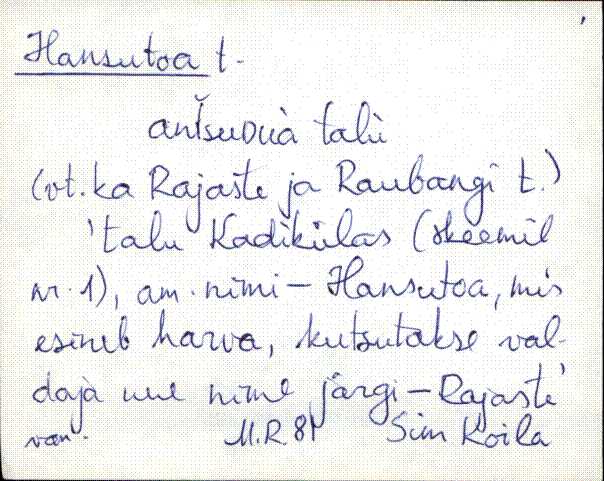 Hansutoa t.
antšuᴅuà talù
(vt. ka Rajaste ja Raubangi t.)
'talu Kadikülas (skeemil
nr. 1), am. nimi – Hansutoa, mis
esineb harva, kutsutakse val-
daja uue nime järgi – Rajaste'
van. M.R 81 Sim Koila